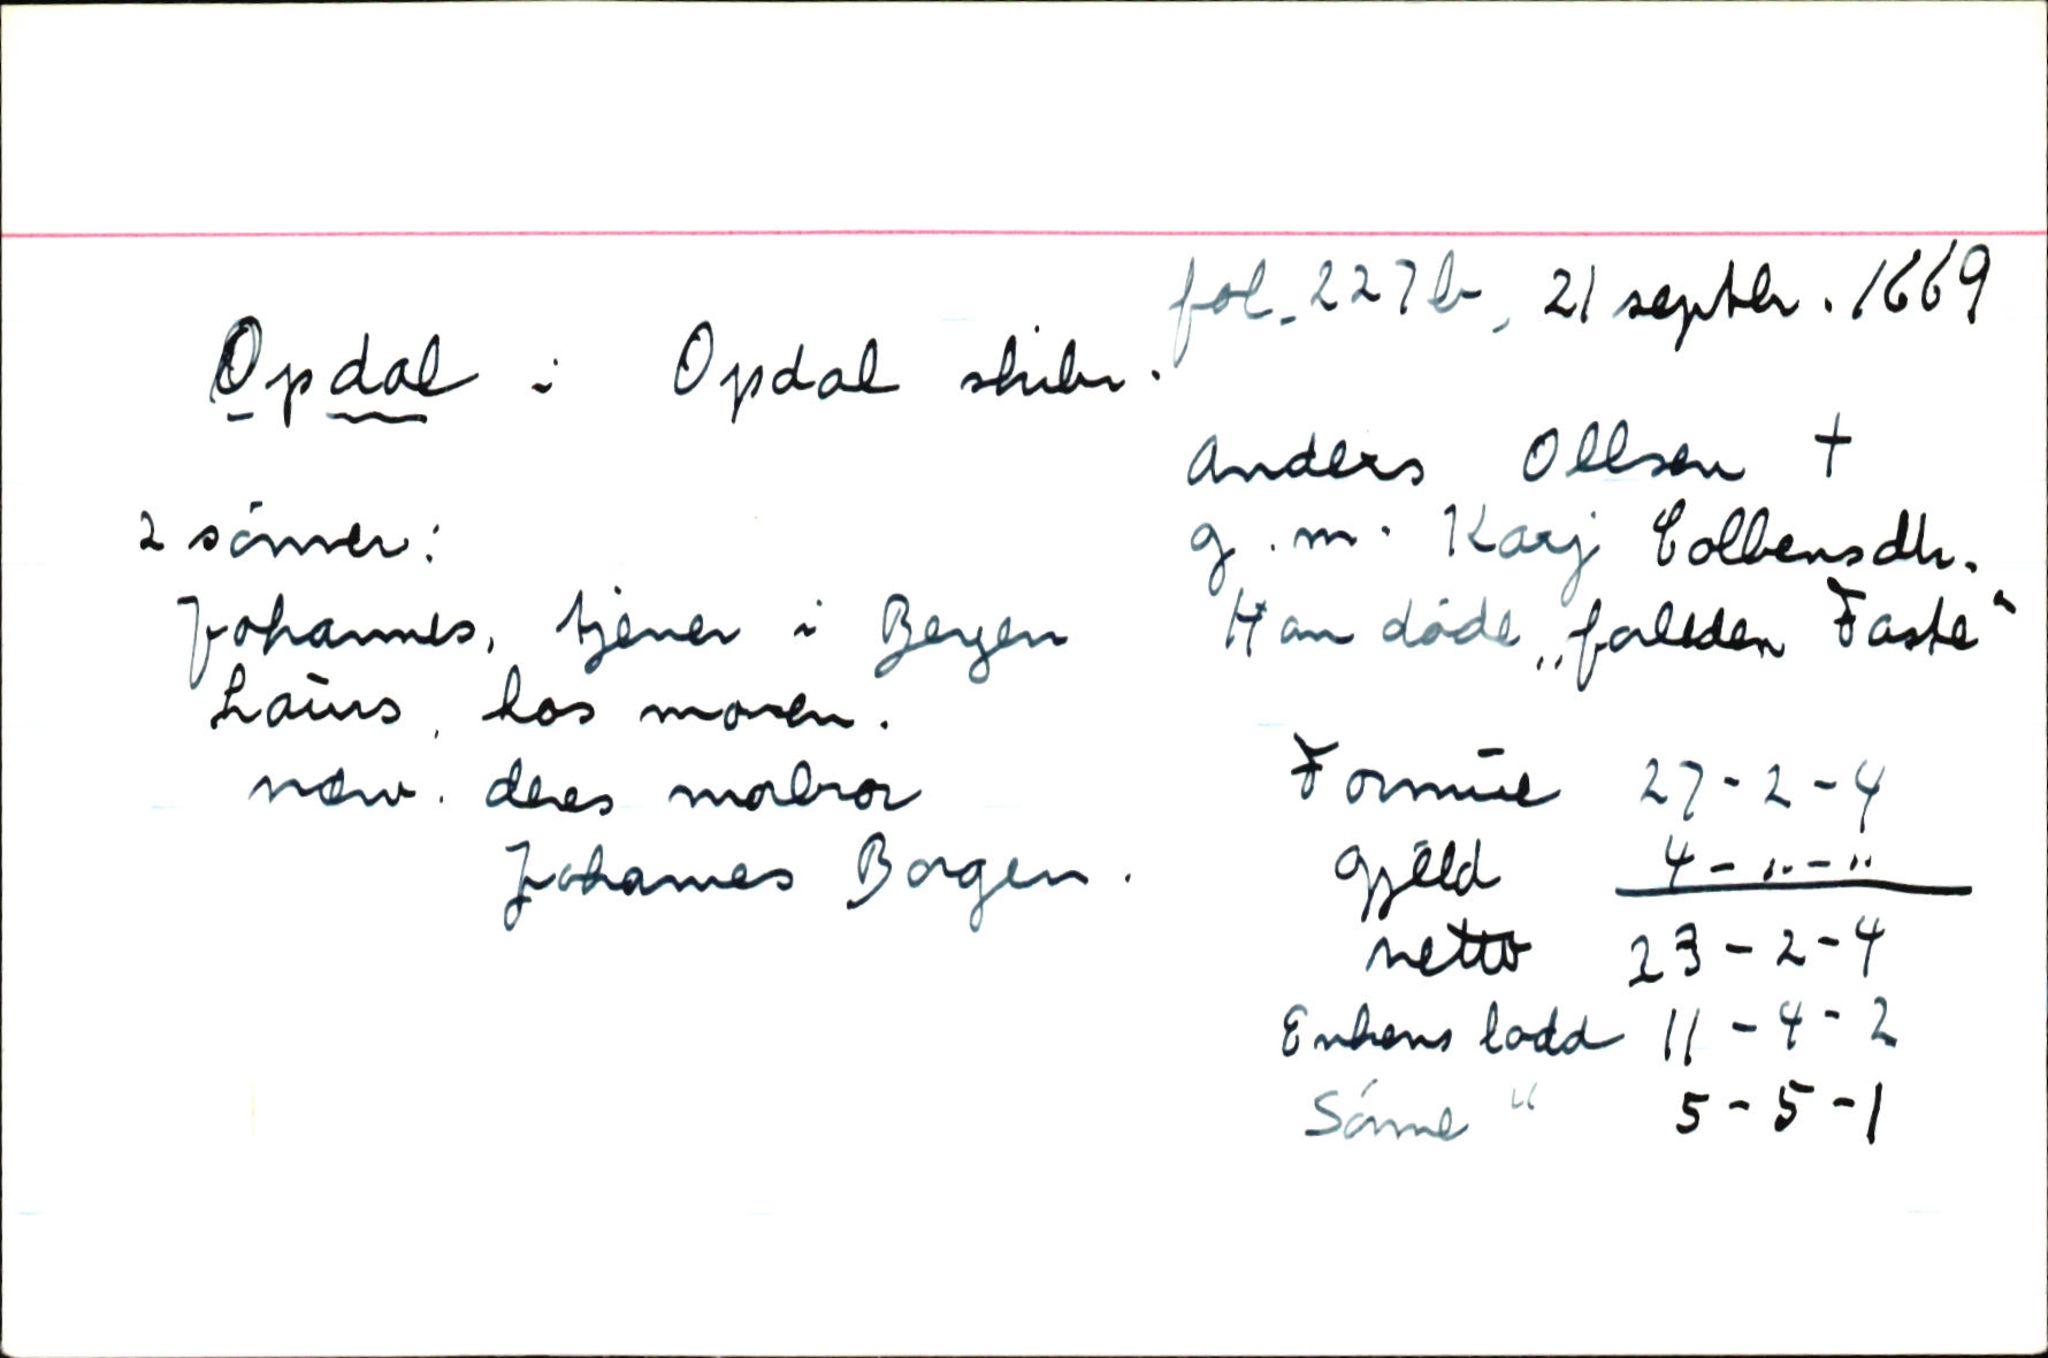 fol. 227b, 21 septbr. 1669
Opdal i Opdal skibr.
Anders Ollsen †
g. m. Karj Colbensdtr.
Han døde "forleden Faste"
2 sönner:
Johannes, tjener i Bergen
Laürs, hos moren.
nærv. deres morbror
Johannes Borgen.
Formüe 27-2-4
Gjæld 4-"-"
netto 23-2-4
Enkens lodd 11-4-2
Sönne " 5-5-1